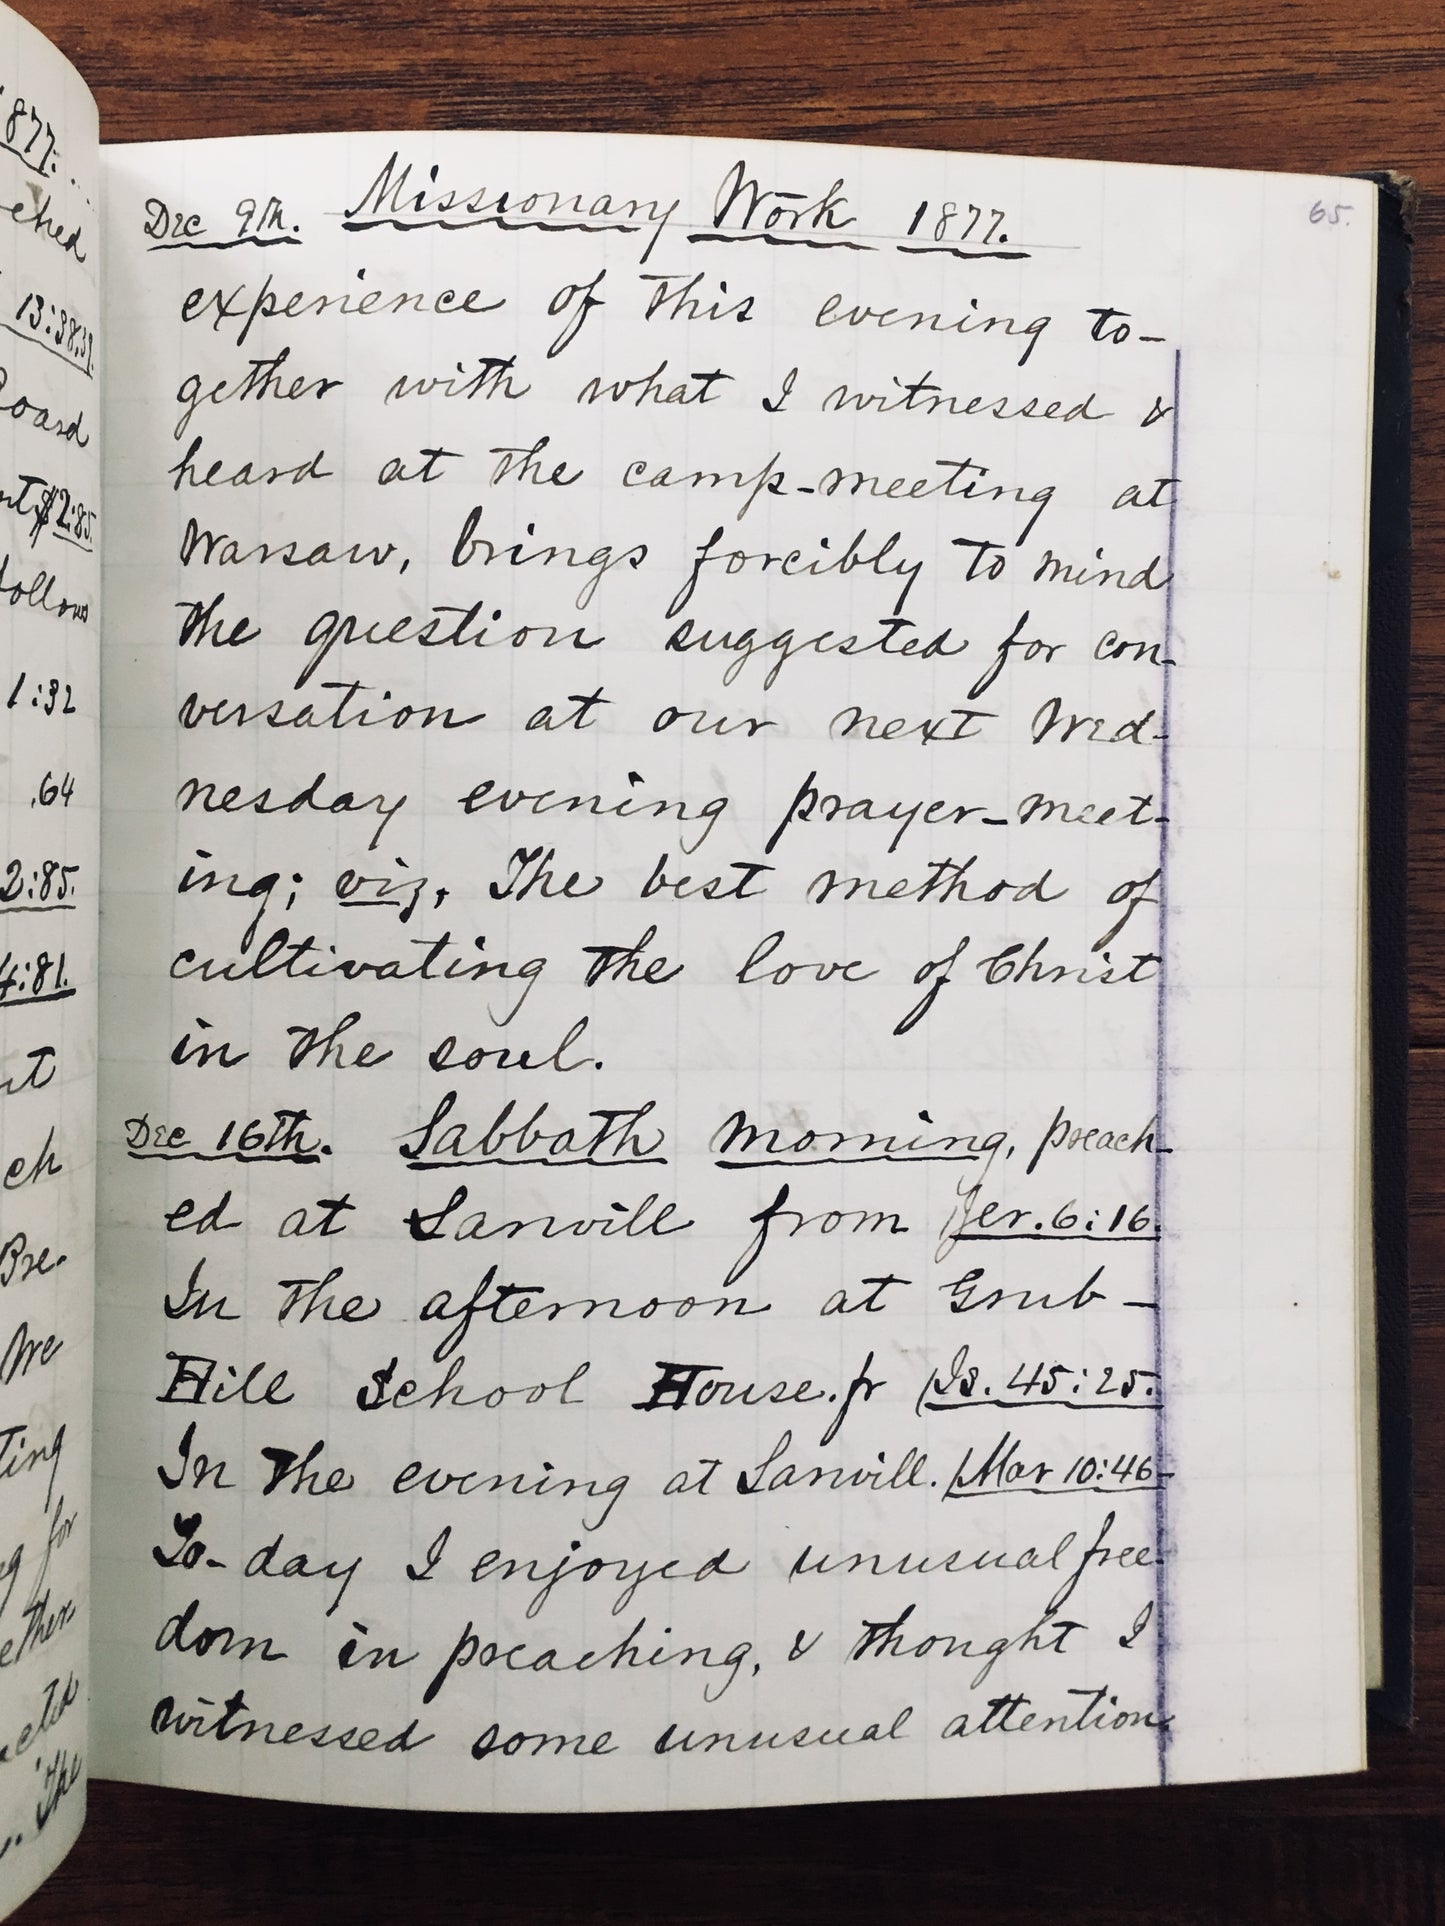 877.
ched
13:38,39.
oard
nt $2:85.
follows
1:32
.64
2:85.
4:81.
ch
Bre-
We
ting
for
ether
ected
The
65.
Dec 9th. Missionary Work 1877.
experience of this evening to-
gether with what I witnessed &
heard at the camp-meeting at
Warsaw, brings forcibly to mind
the question suggested for con-
versation at our next Wed-
nesday evening prayer-meet-
ing; viz, The best method of
cultivating the love of Christ
in the soul.
Dec 16th. Sabbath morning, preach-
ed at Sanvill from Jer. 6:16.
In the afternoon at Grub-
Hill School House. fr Is. 45:25.
In the evening at Sanvill. Mar 10:46-
To-day I enjoyed unusual free-
dom in preaching, & thought I
witnessed some unusual attention